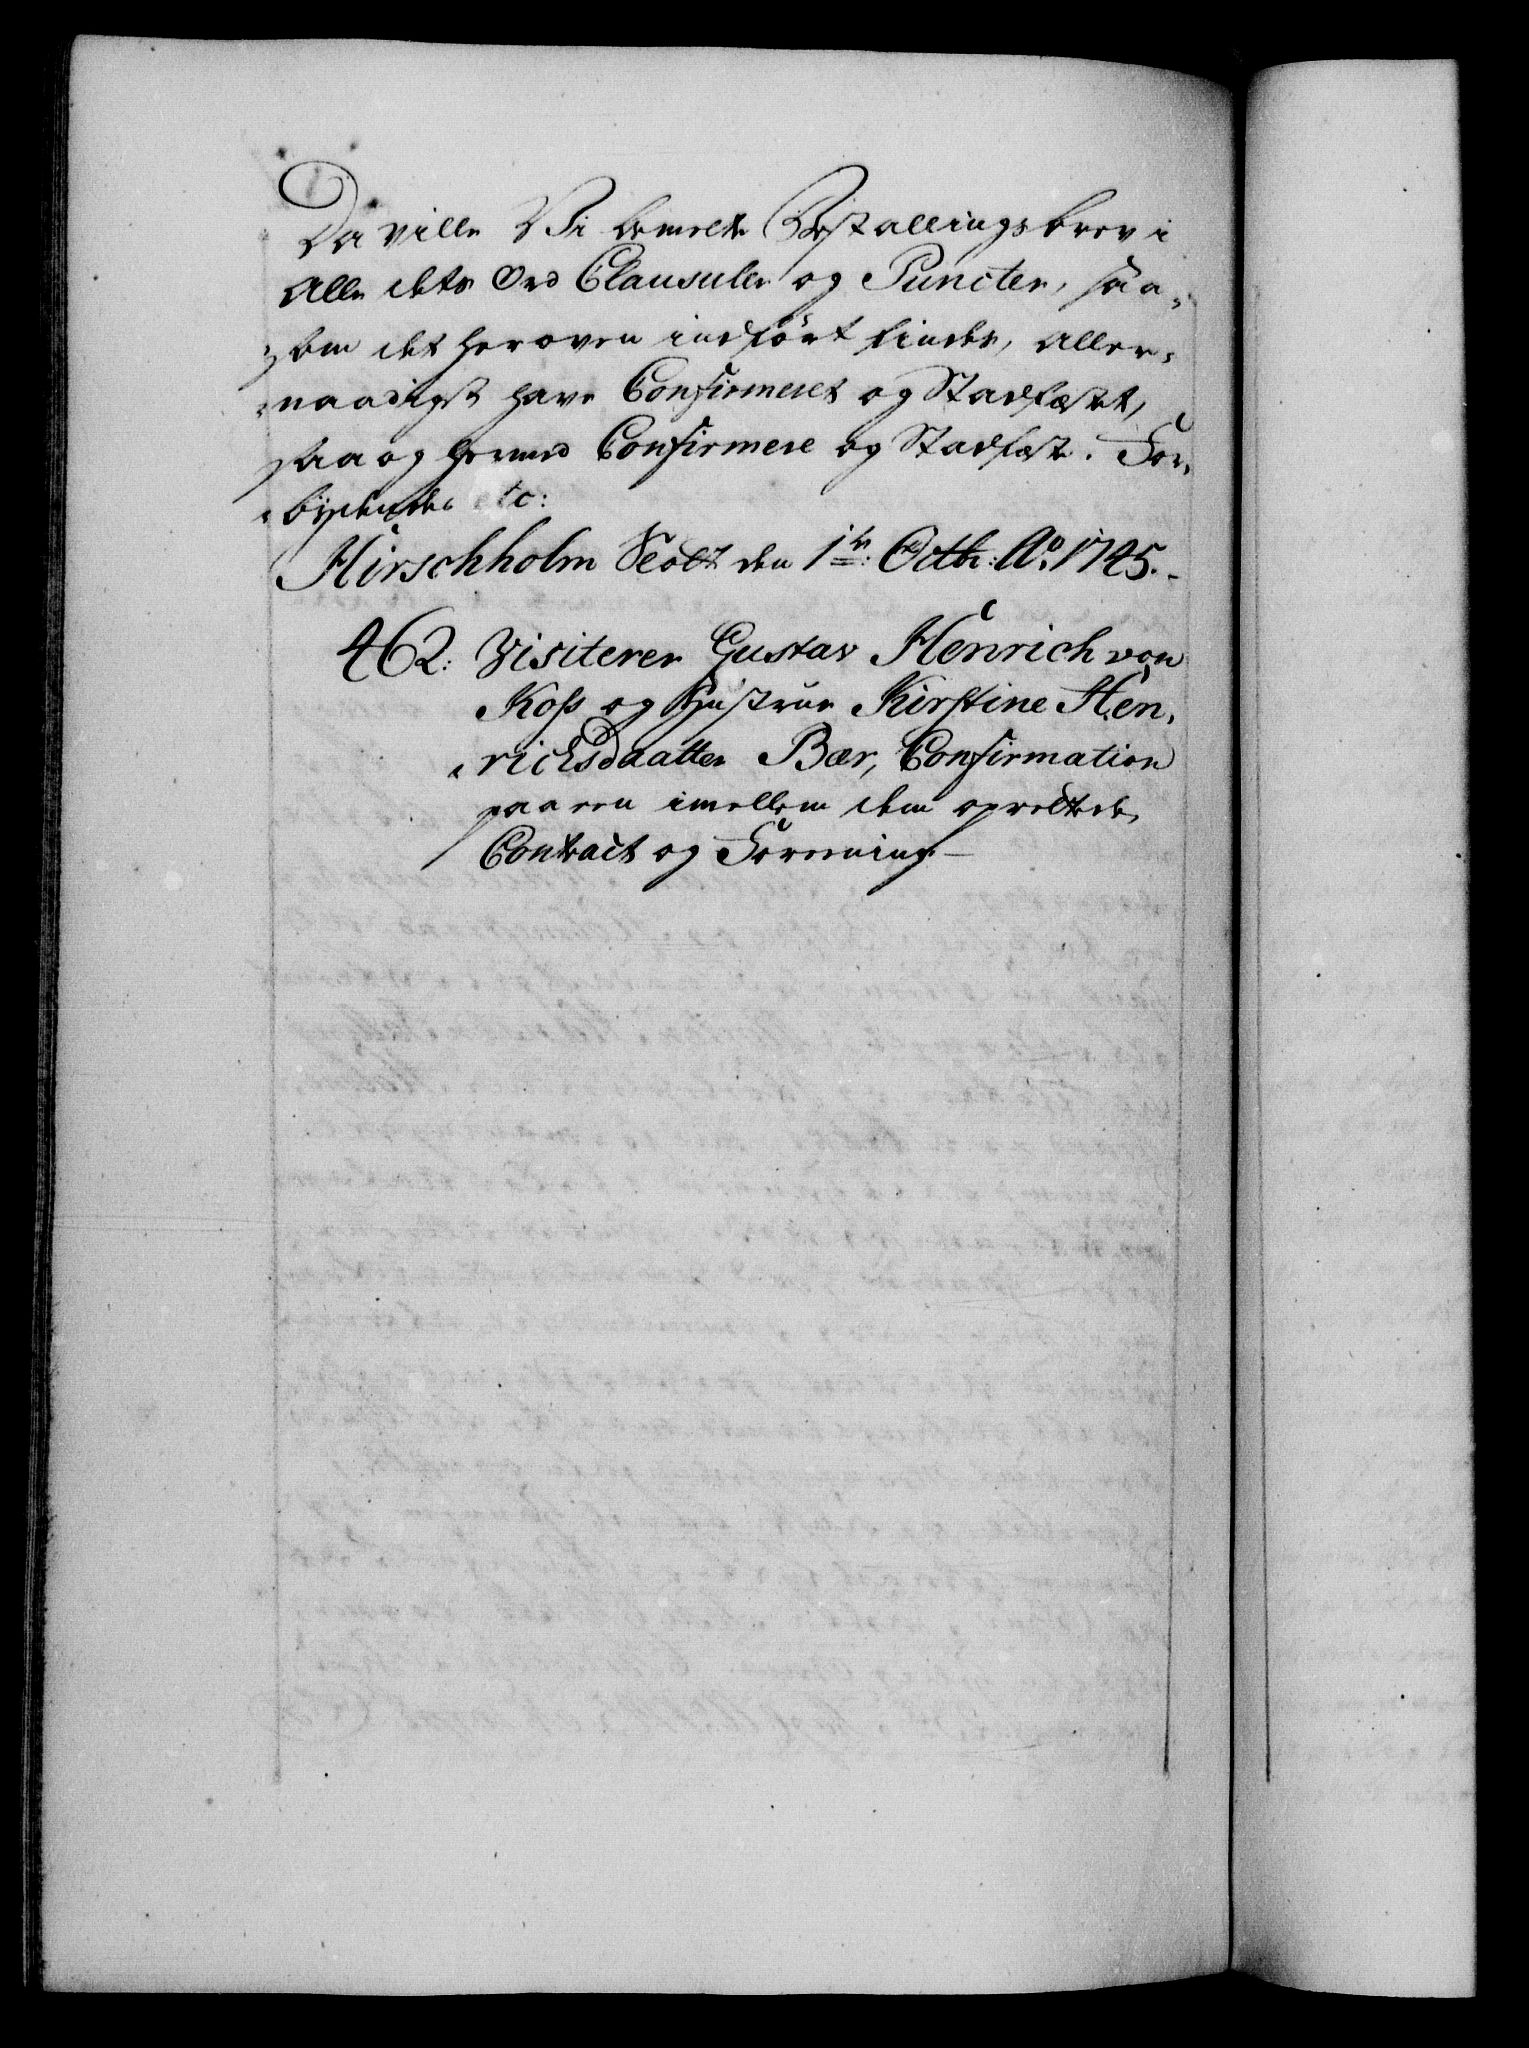 Da ville Vi bemelte Bestallingsbrev i
alle dets Ord Clausuler og Puncter, saa-
som det her oven indført findes, aller-
naadigst have Confirmeret og Stadfæstet,
saa og hermed Confirmere og Stadfæste. For-
bydendes etc:
Hirschholm Slott den 1te Octbr: Ao 1745.
462: Visiterer Gustav Henrich von
Koss og Hustrue Kirstine Hen-
richsdaatter Bær, Confirmation
paa een imellem dem oprettede
Contract og Foreening